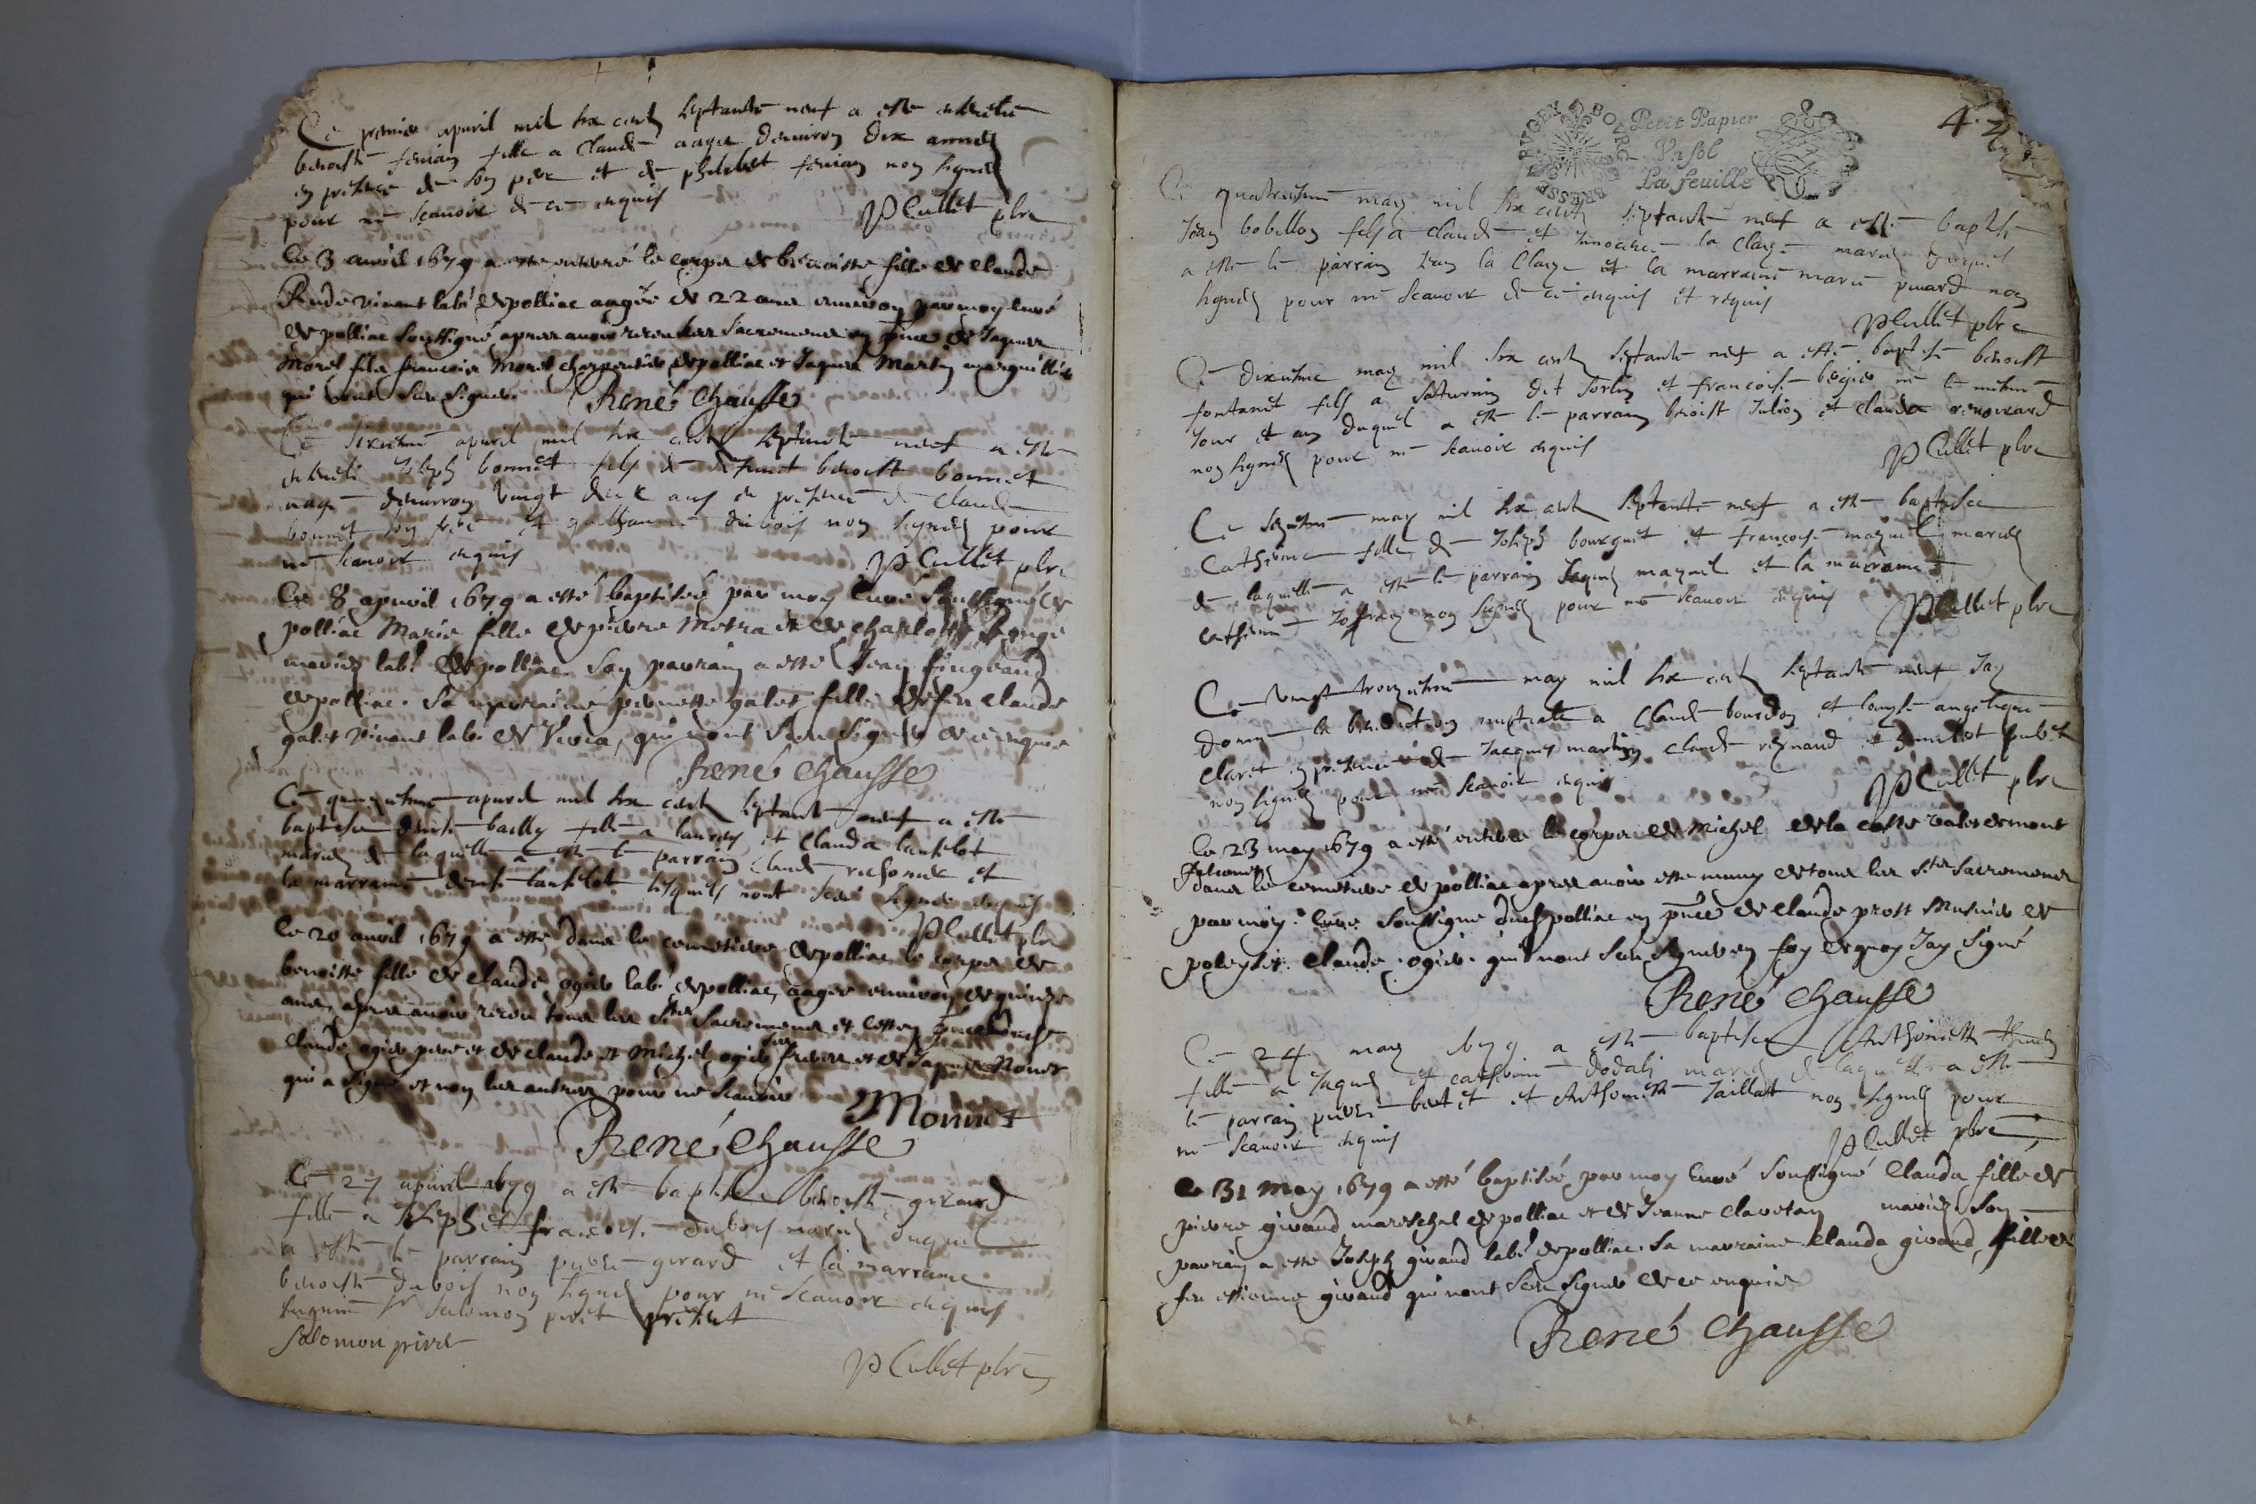 Ce premier apvril mil six cents septante neuf a este enterrée
benoiste fille a Claude aagee denviron dix années
en presence de son pere et de philibert non signes
pour ne scavoir de ce enquis
P Cullet pbre
Le 3 avril 1679 a esté enterré le corps de benoiste fille de Claude
Rude vivant labr de polliac aagée de 22 ans environ par moy curé
de polliac soussigné apres avoir receu les sacrements en pnce de Jaques
Morel fils francois Morel charpentier de polliac et Jaques Martin marguillier
qui n'ont sceu signer. René Chausse
Ce sixieme apvril mil six cents septante neuf a este
enterré Joseph bonnet fils de deffunt benoist bonnet
aagé denviron vingt deux ans en presence de Claude
bonnet son frere et guillaume dubois non signes pour
ne scavoir enquis
P Cullet pbre
Le 8 apvril 1679 a esté baptisée par moy curé soussigné de
polliac Marie fille de pierre Metra et de Charlotte
mariés labr de polliac. Son parrain a esté Jean
de polliac. Sa marraine pernette galet fille de feu Claude
galet vivant labr de, qui n'ont sceu signer de ce enquis
René Chausse
Ce quinzieme apvril mil six cents septante neuf a este
baptisee denise bailly fille a Laurens et Clauda lanselot
mariés de laquelle a este le parrain Claude et
la marraine denise lanselot lesquels n'ont sceu signer enquis
P Cullet pbre
Le 20 avril 1679 a esté dans le cemetiere de polliac le corps de
benoiste fille de Claude ogier labr de polliac, aagee environ de quinze
ans, apres avoir receu tous les Sts Sacrements et ce en pnce dudit
Claude ogier pere et de Claude et Michel ogier ses freres et de Jaques Monet
qui a signé et non les autres pour ne scavoir
Monnet
René Chausse
Ce 27 apvril 1679 a este baptisee benoiste girard
fille a Joseph et francoise dubois mariés duquel
a este le parrain pierre girard et la marraine
benoiste dubois non signes pour ne scavoir enquis
Sr Salomon present
Salomon
P Cullet pbre
4
Petit Papier
Vn sol
La feuille
BOVRG BRESSE BVGEY
Ce quatrieme may mil six cents septante neuf a este baptisé
Jean bobillon fils a Claude et Innocence la Claye mariés duquel
a este le parrain Jean la Claye et la marraine marie puard non
signes pour ne scavoir de ce enquis et requis
P Cullet pbre
Ce dixieme may mil six cents septante neuf a esté baptisé benoist
fontanet fils a Saturnin dit Sorlin et francoise né le mesme
Jour et an duquel a este le parrain benoist Julion et Clauda renouard
non signes pour ne scavoir enquis
P Cullet pbre
Ce seizieme may mil six cents septante neuf a este baptisee
Catherine fille de Joseph bourguet et francoise mariés
de laquelle a este le parrain Jaques et la marraine
Catherine non signes pour ne scavoir enquis
P Cullet pbre
Ce vingt troizieme may mil six cents septante neuf Jay
donné la benediction nuptiale a Claude bourdon et louyse angelique
Claret en presence de Jacques martin, Claude reynaud
non signes pour ne scavoir enquis
P Cullet pbre
Le 23 may 1679 a esté enterré le corps de Michel de la coste valet de mont
dans le cemetiere de polliac apres avoir este muny de tous les Sts Sacrements
par moy curé soussigné dudit polliac en pnce de Claude prost Musnier de
Claude ogier. qui n'ont sceu signer en foy de quoy Jay signé
René Chausse
Ce 24 may 1679 a este baptisee Anthoinette
fille a Jaques et catherine mariés de laquelle a este
le parrain pierre et Anthoinette Taillat non signes pour
ne scavoir enquis
P Cullet pbre
Le 31 may 1679 a esté baptisée par moy curé soussigné Clauda fille de
pierre giraud mareschal de polliac et de Jeanne Clavetan mariés Son
parrain a esté Joseph giraud labr de polliac. Sa marraine Clauda giraud, fille de
feu estienne giraud qui n'ont sceu signer de ce enquis
René Chausse